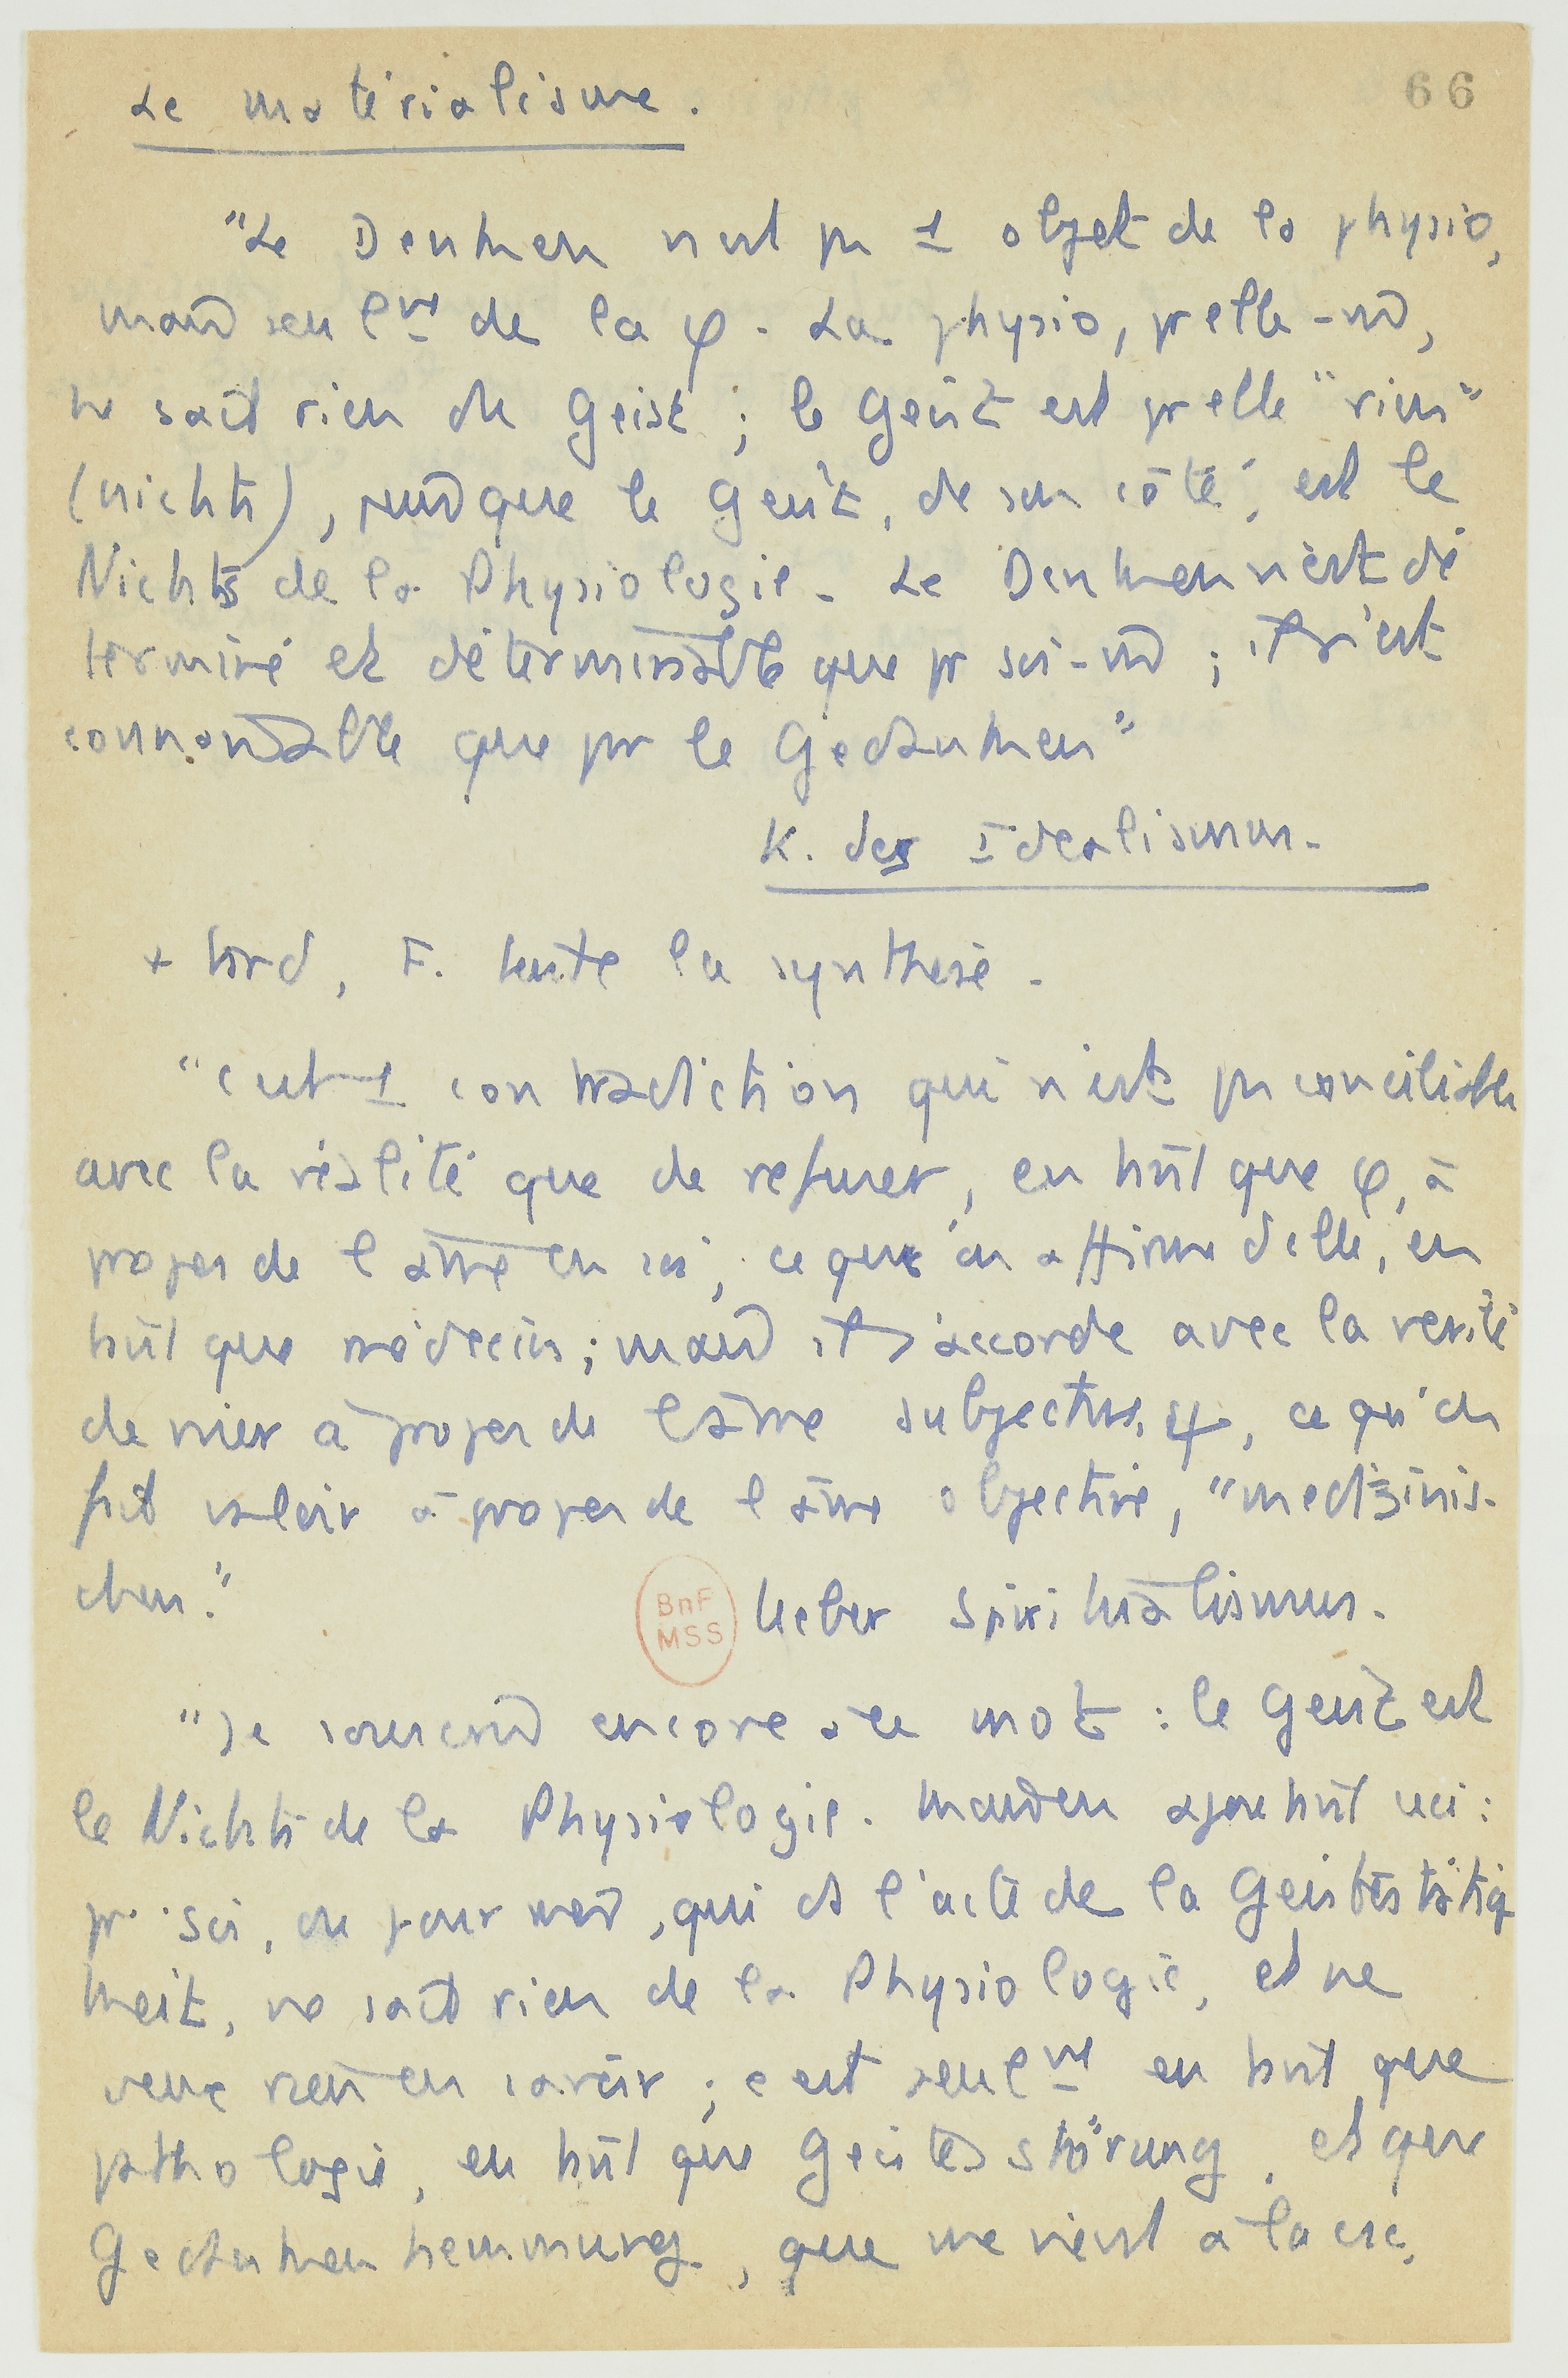 Le matérialisme.
66
"Le Denken n'est pas 1 objet de la physio,
mais seulmt de la φ. La physio, pr elle-m̂,
ne sait rien du Geist ; le Geist est pr elle "rien"
(nichts), puisque le Geist, de son côté, est le
Nichts de la Physiologie. Le Denken n'est dé
terminé et déterminable que pr soi-m̂ ; il n'est
connaissable que pr le Gedanken"
K. des Idealismus.
+ tard, F. tente la synthèse.
"C'est 1 contradiction qui n'est pas conciliable
avec la réalité que de refuser, en tant que φ, à
propos de l'âme en soi, ce qu'on affirme d'elle, en
tant que médecin ; mais il s'accorde avec la vérité
de nier à propos de l'âme subjective, ψ, ce qu'on
fait valoir à propos de l'âme objective, "medizinis-
chen."
BnF
MSS
Ueber Spiritualismus.
"Je souscris encore à ce mot : le Geist est
le Nichts de la Physiologie. Mais en ajoutant ceci :
pr soi, ou pour moi, qui ds l'acte de la Geistestätig
keit, ne sait rien de la Physiologie, et ne
veux rien en savoir ; c'est seulmt en tant que
pathologie, en tant que Geistesstörung, et que
Gedankenhemmung, que me vient à la csc,